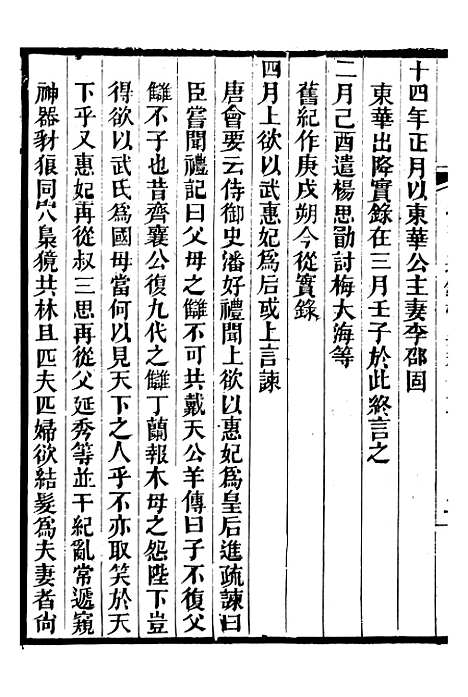 十四年正月以東華公主妻李邵固
東華出降實錄在三月壬子於此終言之
二月己酉遣楊思勗討梅大海等
舊紀作庚戌朔今從實錄
四月上欲以武惠妃爲后或上言諫
唐會要云侍御史潘好禮聞上欲以惠妃爲皇后進疏諫曰
臣嘗聞禮記曰父母之讎不可共戴天公羊傳曰子不復父
讎不子也昔齊襄公復九代之讎丁蘭報木母之怨陛下豈
得欲以武氏爲國母當何以見天下之人乎不亦取笑於天
下乎又惠妃再從叔三思再從父延秀等並干紀亂常遞窺
神器豺狼同穴梟獍共林且匹夫匹婦欲結髮爲夫妻者尙